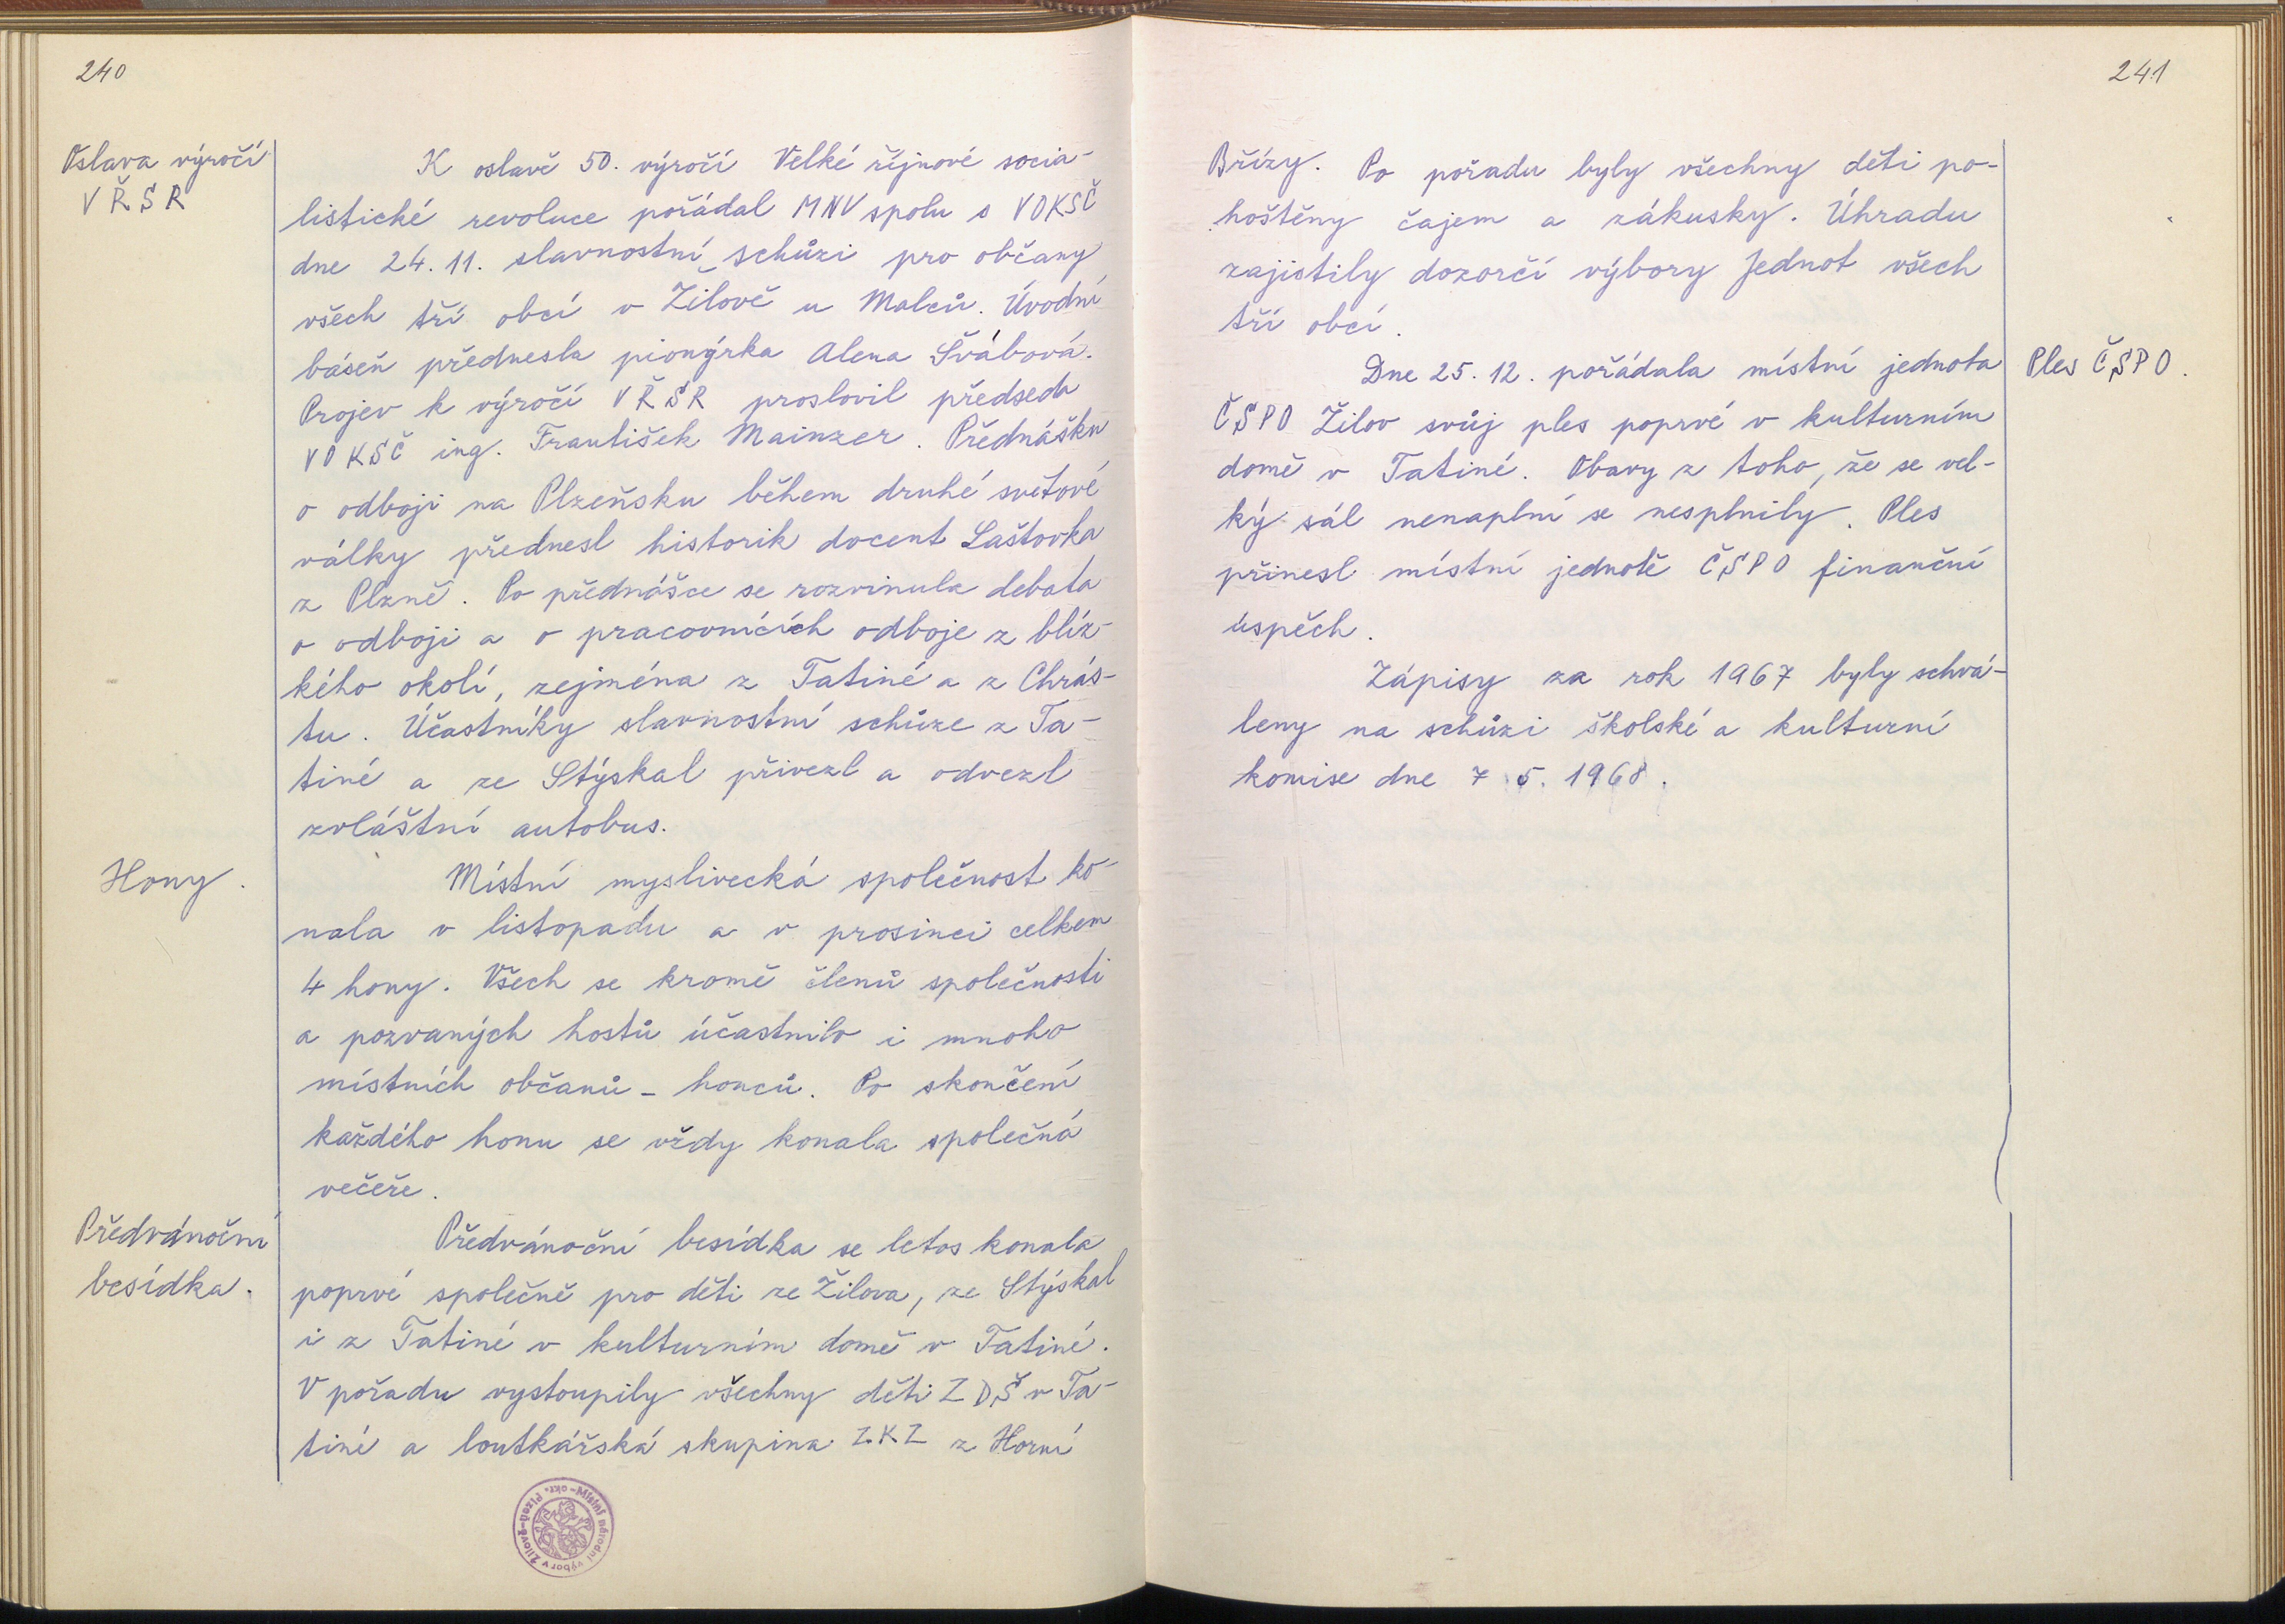 240
Oslava výročí
VŘSR
K oslavě 50. výročí Velké říjnové socia-
listické revoluce pořádal MNV spolu s VOKSČ
dne 24. 11. slavnostní schůzi pro občany
všech tří obcí v Žilově u Malců. Úvodní
báseň přednesla pionýrka Alena Švábová.
Projev k výročí VŘSR proslovil předseda
VOKSČ ing. František Mainzer. Přednášku
o odboji na Plzeňsku během druhé světové
války přednesl historik docent Laštovka
z Plzně. Po přednášce se rozvinula debata
o odboji a o pracovnících odboje z blíz-
kého okolí, zejména z Tatiné a z Chrás-
tu. Účastníky slavnostní schůze z Ta-
tiné a ze Stýskal přivezl a odvezl
zvláštní autobus.
Hony.
Místní myslivecká společnost ko-
nala v listopadu a v prosinci celkem
4 hony. Všech se kromě členů společnosti
a pozvaných hostů účastnilo i mnoho
místních občanů - honců. Po skončení
každého honu se vždy konala společná
večeře.
Předvánoční
besídka.
Předvánoční besídka se letos konala
poprvé společně pro děti ze Žilova, ze Stýskal
i z Tatiné v kulturním domě v Tatiné.
V pořadu vystoupily všechny děti ZDŠ v Ta-
tiné a loutkářská skupina ZKZ z Horní
Místní národní výbor v Žilově-okr. Plzeň-
241
Břízy. Po pořadu byly všechny děti po-
hoštěny čajem a zákusky. Úhradu
zajistily dozorčí výbory Jednot všech
tří obcí.
Dne 25. 12. pořádala místní jednota
Ples ČSPO.
ČSPO Žilov svůj ples poprvé v kulturním
domě v Tatiné. Obavy z toho, že se vel-
ký sál nenaplní se nesplnily. Ples
přinesl místní jednotě ČSPO finanční
úspěch.
Zápisy za rok 1967 byly schvá-
leny na schůzi školské a kulturní
komise dne 7 5. 1968.